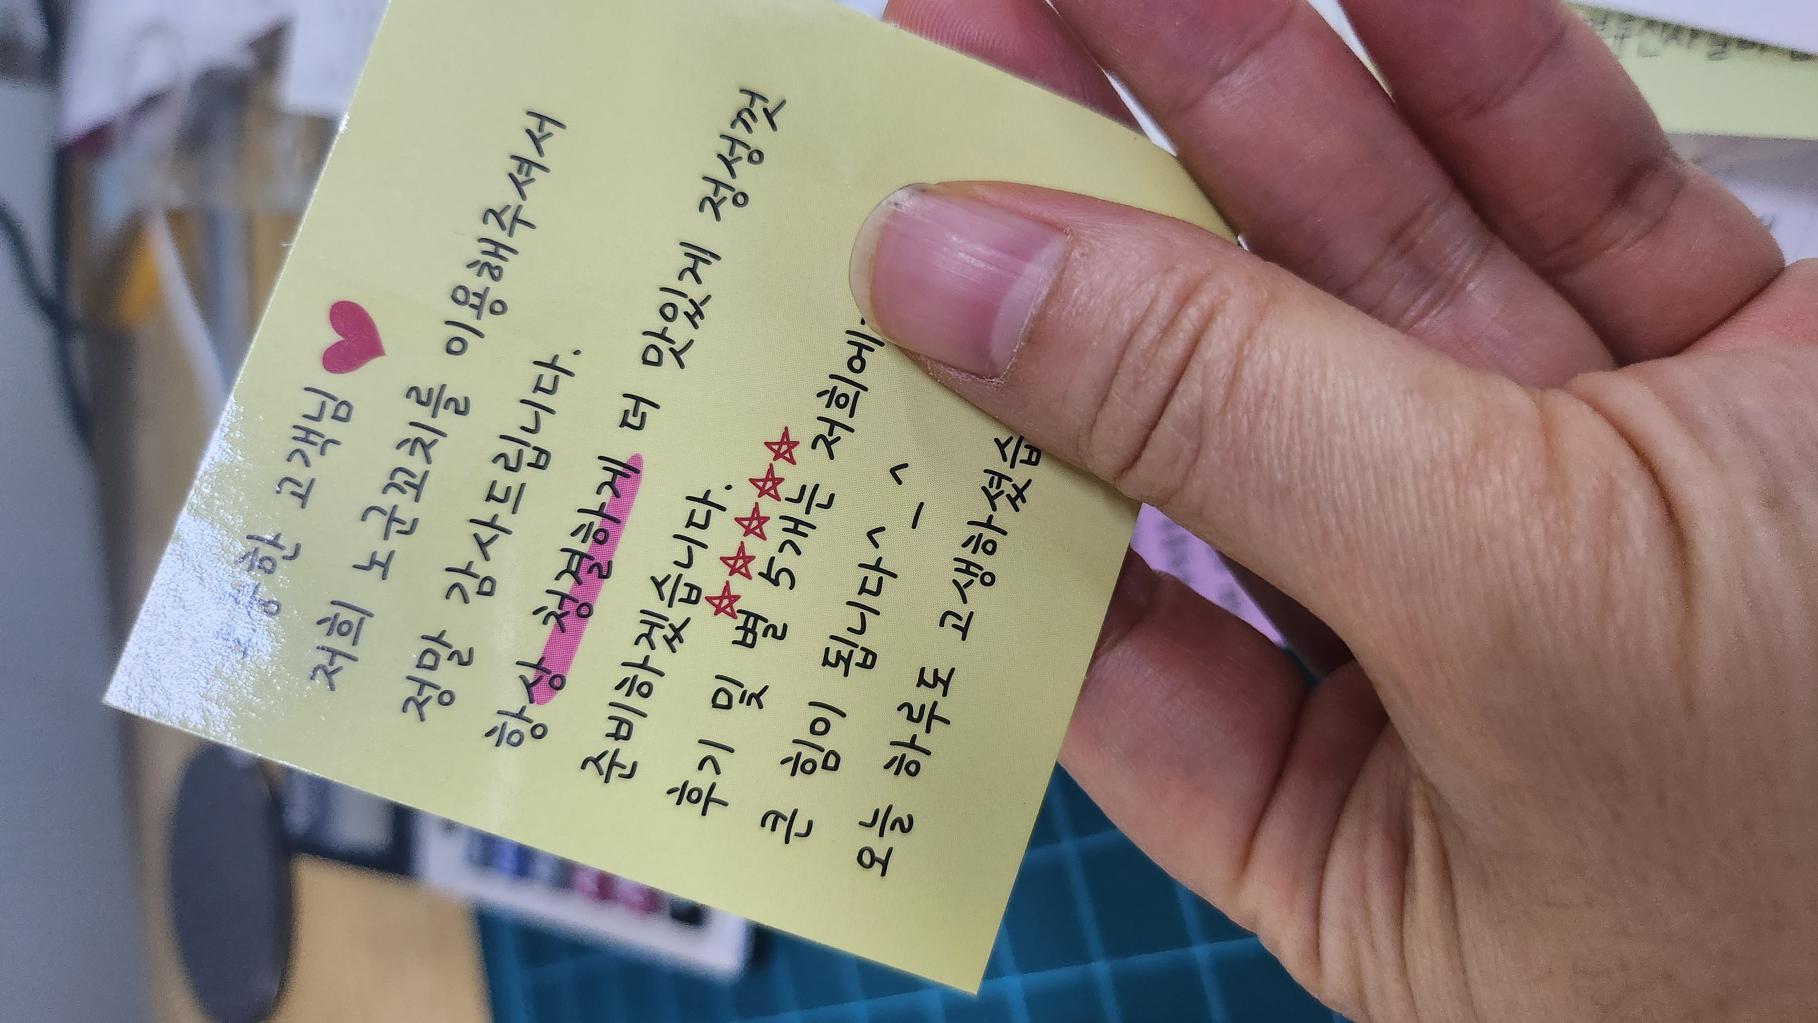 고객님
저희 노군꼬치를 이용해주셔서
정말 감사드립니다.
항상 청결하게 더 맛있게 정성껏
준비하겠습니다.
후기 및 별 5개는 저희에
큰 힘이 됩니다^_^
오늘 하루도 고생하셨습